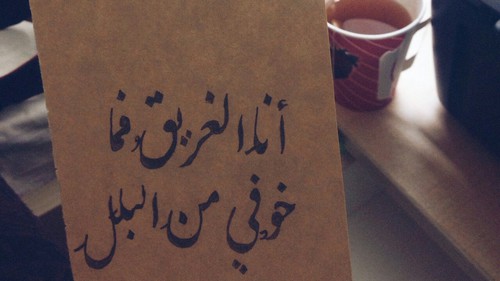 أنا الغريق فما
خوفي من البلل